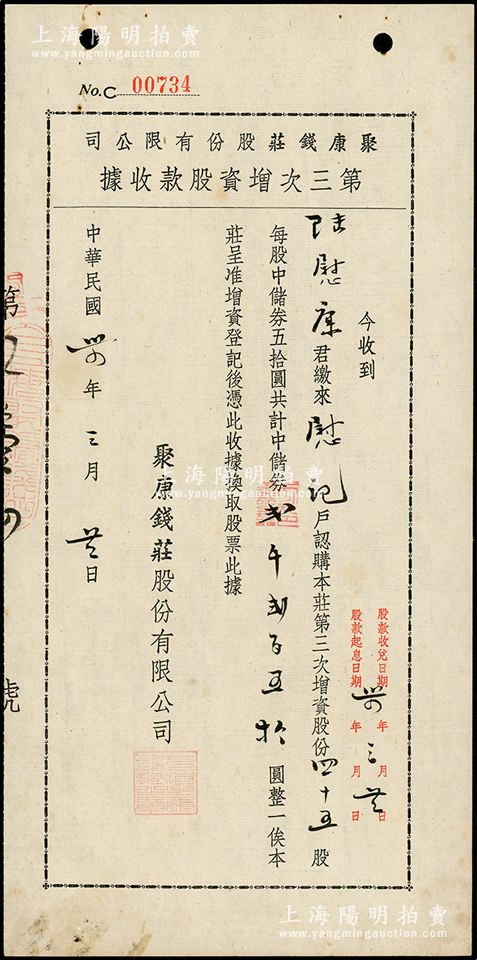 上海陽明拍賣
www.yangmingauction.com
上海陽明拍賣
www.yangmingauction.com
No. C 00734
聚康錢莊股份有限公司
第三次增資股款收據
今收到
慰康君繳來慰記戶認購本莊第三次增資股份四十五股
每股中儲券五拾圓共計中儲券弍千弍百五拾圓整一俟本
莊呈准增資登記後憑此收據換取股票此據
聚康錢莊股份有限公司
中華民國卅四年三月廿日
股款收兌日期 年 月 日
股款起息日期 卅四年三月廿日
第
號
上海陽明拍賣
www.yangmingauction.com
上海陽明拍賣
www.yangmingauction.com